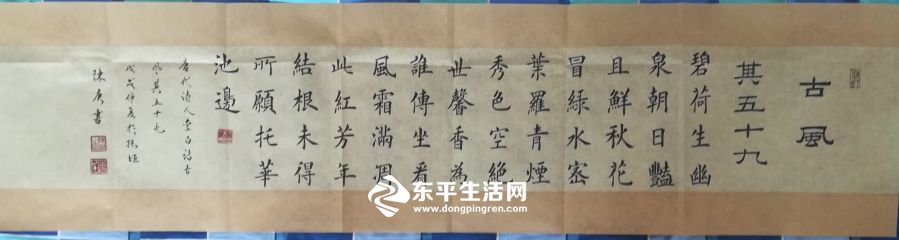 古風
其五十九
碧荷生幽
泉朝日豔
且鮮秋花
冒綠水密
葉羅青煙
秀色空絕
世馨香為
誰傳坐看
風霜滿凋
此紅芳年
結根未得
所願托華
池邊
唐代诗人李白詩古
風其五十九
戊戌仲夏於
陳書
东平生活网
www.dongpingren.com